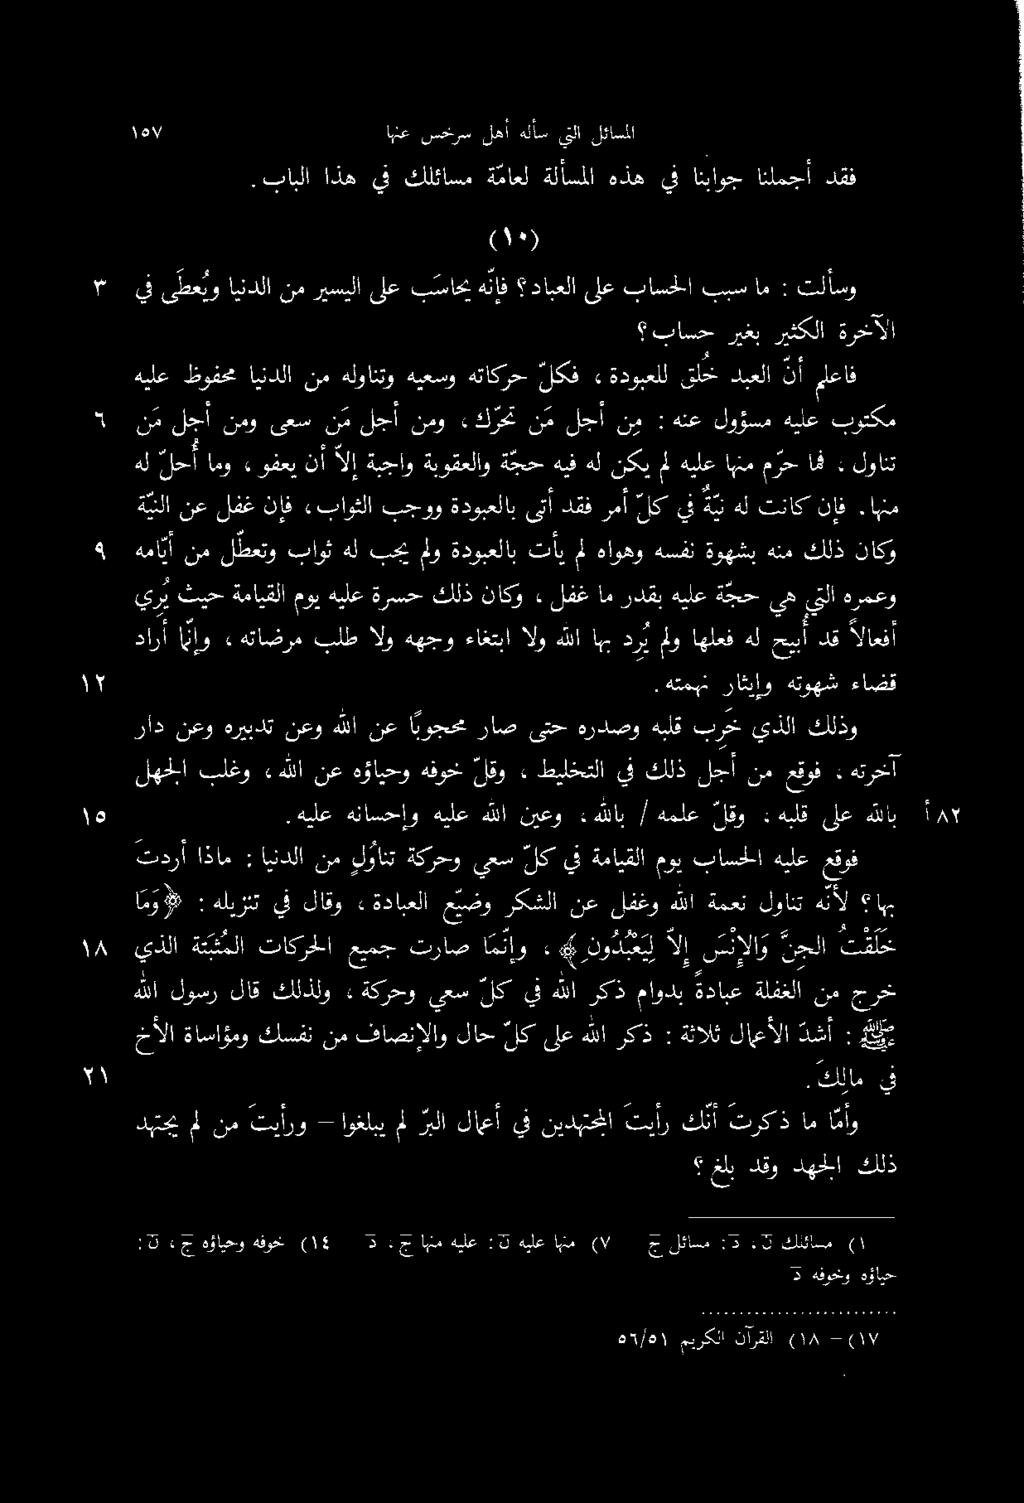 المسائل التي سأله أهل سرخس عنها ١٥٧
فقد أجملنا جوابنا في هذه المسألة لعامّة مسائلك في هذا الباب.
(١٠)
وسألت : ما سبب الحساب على العباد؟ فإنّه يحاسَب على اليسير من الدنيا ويُعطَى في ٣
الآخرة الكثير بغير حساب؟
فاعلم أنّ العبد خُلق للعبودة ، فكلّ حركاته وسعيه وتناوله من الدنيا محفوظ عليه
مكتوب عليه مسؤول عنه : مِن أجل مَن تحرّك، ومن أجل مَن سعى ومن أجل مَن ٦
تناول ، فما حرم منها عليه لم يكن له فيه حجّة والعقوبة واجبة إلّا أن يعفو ، وما أُحلّ له
منها. فإن كانت له نيّةٌ في كلّ أمر فقد أتى بالعبودة ووجب الثواب، فإن غفل عن النيّة
وكان ذلك منه بشهوة نفسه وهواه لم يأت بالعبودة ولم يجب له ثواب وتعطّل من أيّامه ٩
وعمره التي هي حجّة عليه بقدر ما غفل ، وكان ذلك حسرة عليه يوم القيامة حيث يُرِي
أفعالاً قد أُبيح له فعلها ولم يُرِد بها الله ولا ابتغاء وجهه ولا طلب مرضاته ، وإنّما أراد
قضاء شهوته وإيثار نهمته. ١٢
وذلك الذي خَرِب قلبه وصدره حتى صار محجوبًا عن الله وعن تدبيره وعن دار
آخرته ، فوقع من أجل ذلك في التخليط ، وقلّ خوفه وحياؤه عن الله، وغلب الجهل
بالله على قلبه ، وقلّ علمه / بالله ، وعين الله عليه وإحسانه عليه. ١٥ ٨٢أ
فوقع عليه الحساب يوم القيامة في كلّ سعي وحركة تناوُلٍ من الدنيا : ماذا أردتَ
بها؟ لأنّه تناول نعمة الله وغفل عن الشكر وضيّع العبادة ، وقال في تنزيله : ﴿وَمَا
خَلَقْتُ الجِنَّ وَالإِنْسَ إِلّا لِيَعْبُدُونِ﴾ ، وإنّمَا صارت جميع الحركات المُثبَتة الذي ١٨
خرج من الغفلة عبادةً بدوام ذكر الله في كلّ سعي وحركة ، ولذلك قال رسول الله
ﷺ : أشدّ الأعمال ثلاثة : ذكر الله على كلّ حال والإنصاف من نفسك ومؤاساة الأخ
في مالِكَ. ٢١
وأمّا ما ذكرتَ أنّك رأيتَ المجتهدين في أعمال البرّ لم يبلغوا – ورأيتَ من لم يجتهد
ذلك الجهد وقد بلغ ؟
١) مسائلك ن ، د : مسائل ج ٧) منها عليه ن : عليه منها ج ، د ١٤) خوفه وحياؤه ج ، ن :
حياؤه وخوفه د
١٧) – ١٨) القرآن الكريم ٥٦/٥١